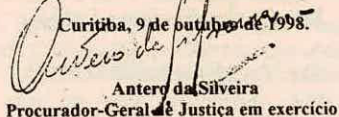 Curitiba, 9 de outubro de 1998.
Antero da Silveira
Procurador-Geral de Justiça em exercício